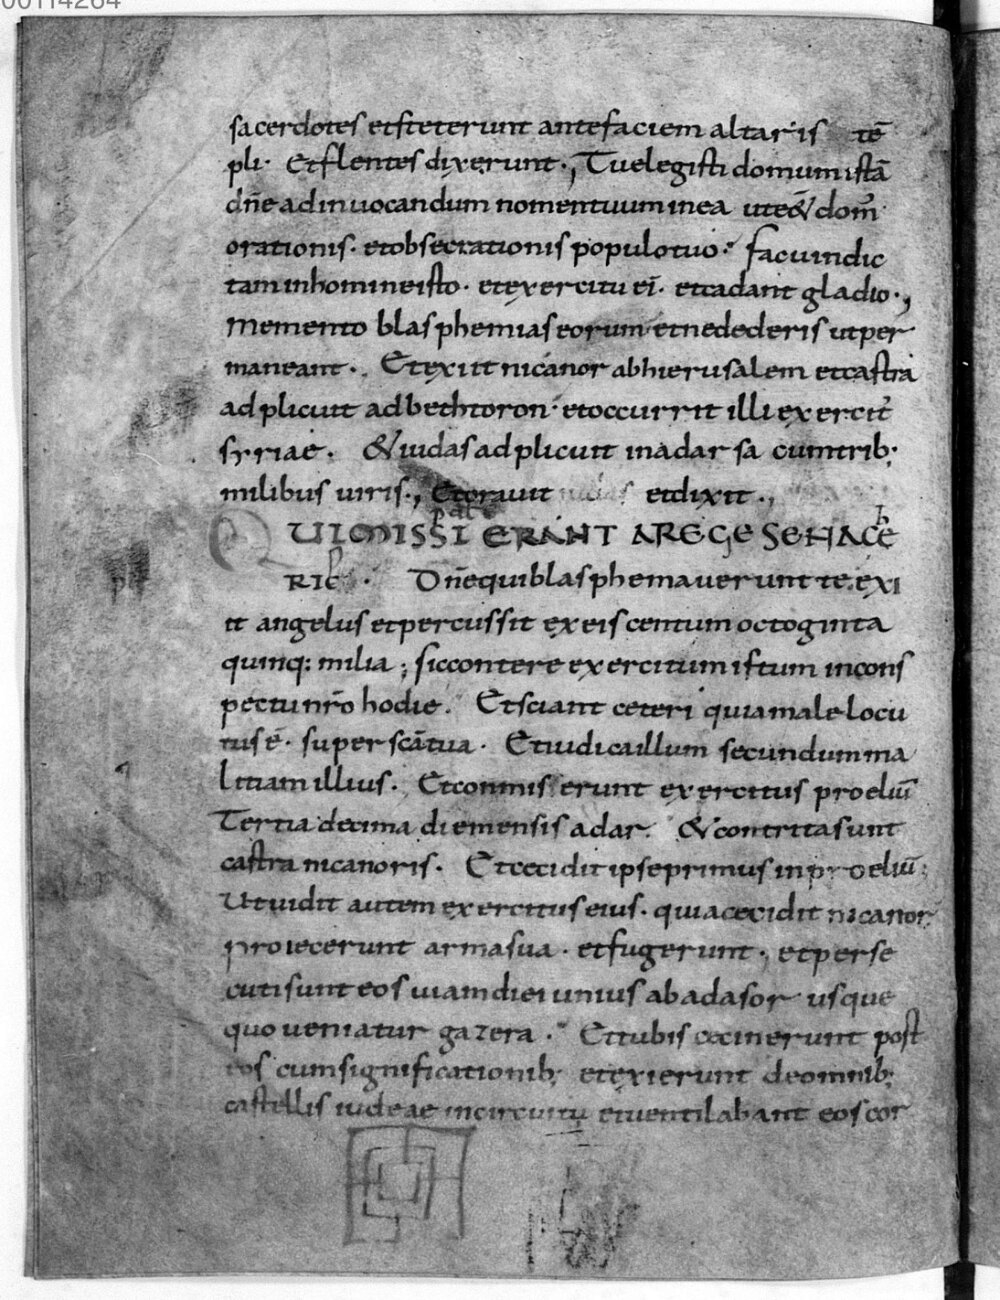 00114264
sacerdotes etsteterunt antefaciem altaris tē
pli· Etflentes dixerunt·, Tuelegisti domum istā
dn̄e adinuocandum nomentuum inea ute& dom̄
orationis· etobsecrationis populotuo· facuindic
tam inhomineisto· etexercitu ei᷒· etcadant gladio·,
Memento blasphemiaseorum etnedederis utper
maneant·. Etexiit nicanor abhierusalem etcastra
adplicuit adbethtoron· etoccurrit illi exercit᷒
syriae· & iudas adplicuit inadarsa cumtrib;
milibus uiris·, Etorauit iudas etdixit·,
QUIMISSI ERANT AREGE SENACE
RIB· Dn̄equiblasphemauerunt te. exi
it angelus etpercussit exeis centum octoginta
quinq: milia; siccontere exercitum istum incons
pectu nr̄o hodie. Etsciant ceteri quiamale locu
tus ē· super scāt̄ua· Etiudicaillum secundum ma
litiam illius. Etconmiserunt exercitus proeliū
Tertia decima diemensis adar. & contritasunt
castra nicanoris. Etcecidit ipseprimus inproeliū;
Utuidit autem exercitus eius· quiacecidit nicanor
proiecerunt armasua· etfugerunt· etperse
cutisunt eos uiam diei unius abadasor usque
quo ueniatur gazera·. Ettubis cecinerunt post
eos cumsignificationib; etexierunt deomnib;
castellis iudeae incircuitu etuentilabant eos cor